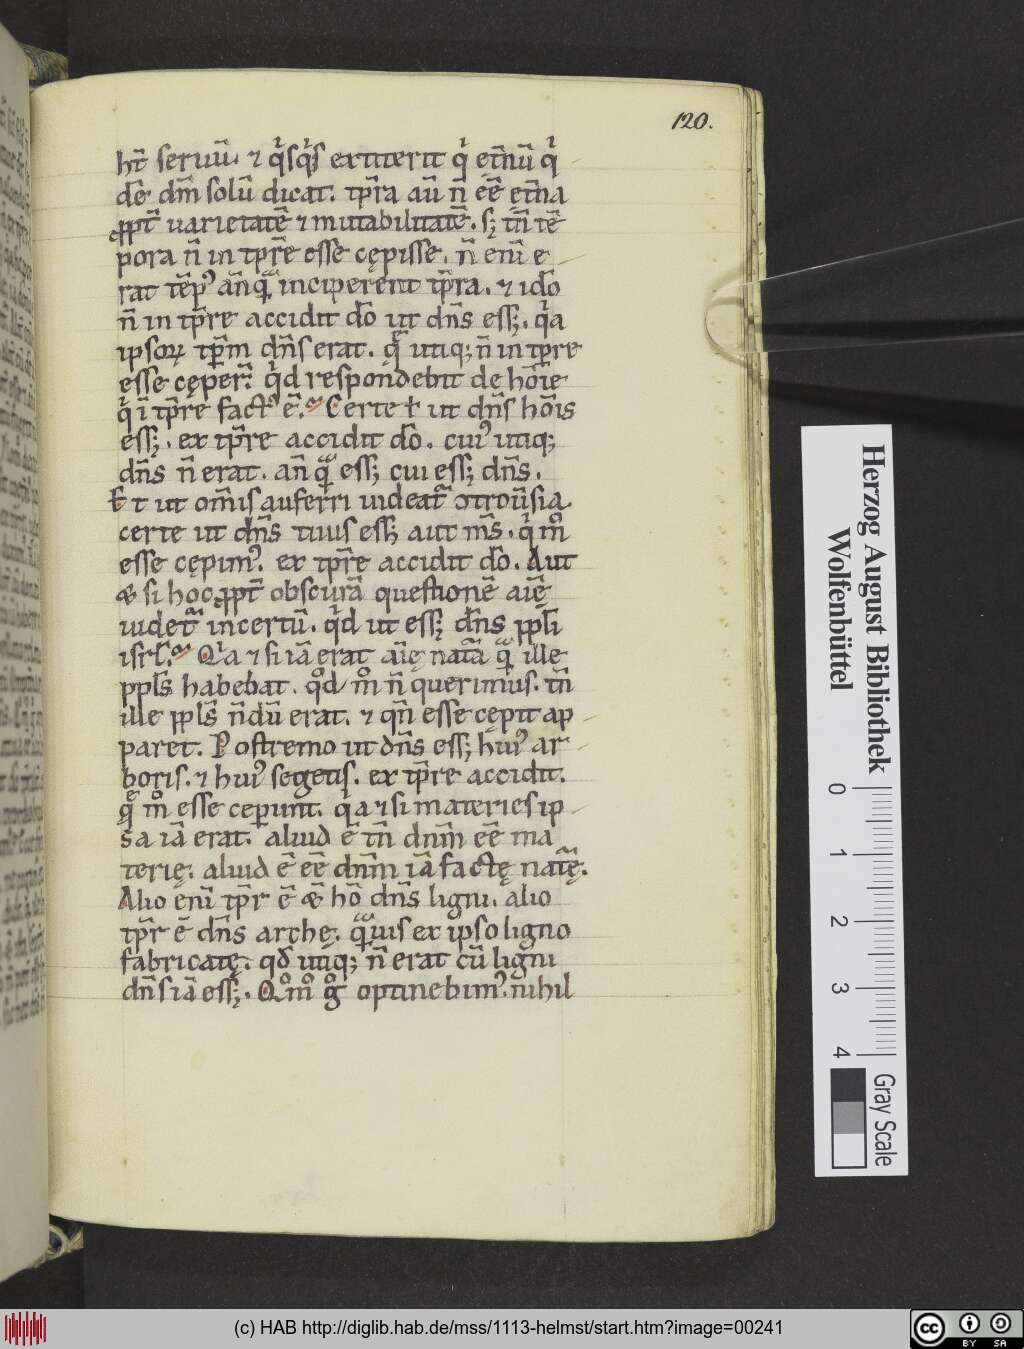 120.
hт̄ seruū. ⁊ qͥsqͥs extiterit qͥ et̄nū qͥ
dē dn̄m solū dicat. tp̄ra aū n̄ eē et̄na
ꝓpt̄ uarietatē ⁊ mutabilitatē. sꝫ tn̄ tē
pora n̄ in tp̄re esse cępisse. n̄ eni̅ e
rat tēpꝰ an̄qᷓ inciperent tp̄ra. ⁊ ido̅
n̄ in tp̄re accidit do̅ ut dn̄s essꝫ. qͥa
ipsoꝝ tp̄m dn̄s erat. qᷓ utiqꝫ n̄ in tp̄re
esse cęper̄. qͥd respondebit de ho̅ie
qͥ ī tp̄re factꝰ ē. Certe ł ut dn̄s ho̅is
essꝫ. ex tp̄re accidit do̅. cuiꝰ utiqꝫ
dn̄s n̄ erat. an̄ qᷓ essꝫ cui essꝫ dn̄s.
Et ut om̄is auferri uideat᷑ ↄtrou̅sia.
certe ut dn̄s tuus essꝫ aut n̄s. qͥ mͦ
esse cępimꝰ. ex tp̄re accidit do̅. Aut
& si hoc ꝓpt̄ obscurā questionē aīę
uidet᷑ incertū. qͥd ut essꝫ dn̄s ppl̄i
isrl̄. Qͥa ⁊ si iā erat aīę nat᷑a qᷓ ille
ppl̄s habebat. qͦd mͦ n̄ querimus. tn̄
ille ppl̄s n̄dū erat. ⁊ qn̄ esse cępit ap
paret. Postremo ut dn̄s essꝫ huiꝰ ar
boris. ⁊ huiꝰ segetis. ex tp̄re accidit.
qᷓ mͦ esse ceperunt. qͥa ⁊ si materies ip
sa iā erat. aliud ē tn̄ dn̄m eē ma
terię. aliud ē eē dn̄m iā factę nat᷑ę.
Alio eni̅ tp̄r ē & ho̅ dn̄s ligni. alio
tp̄r ē dn̄s archę. qᷓuis ex ipso ligno
fabricatę. qd̄ utiqꝫ n̄ erat cū ligni
dn̄s iā essꝫ. Qͦmͦ gͦ optinebimꝰ. nihil
Herzog August Bibliothek
Wolfenbüttel
0 1 2 3 4
Gray Scale
(c) HAB http://diglib.hab.de/mss/1113-helmst/start.htm?image=00241
cc BY SA